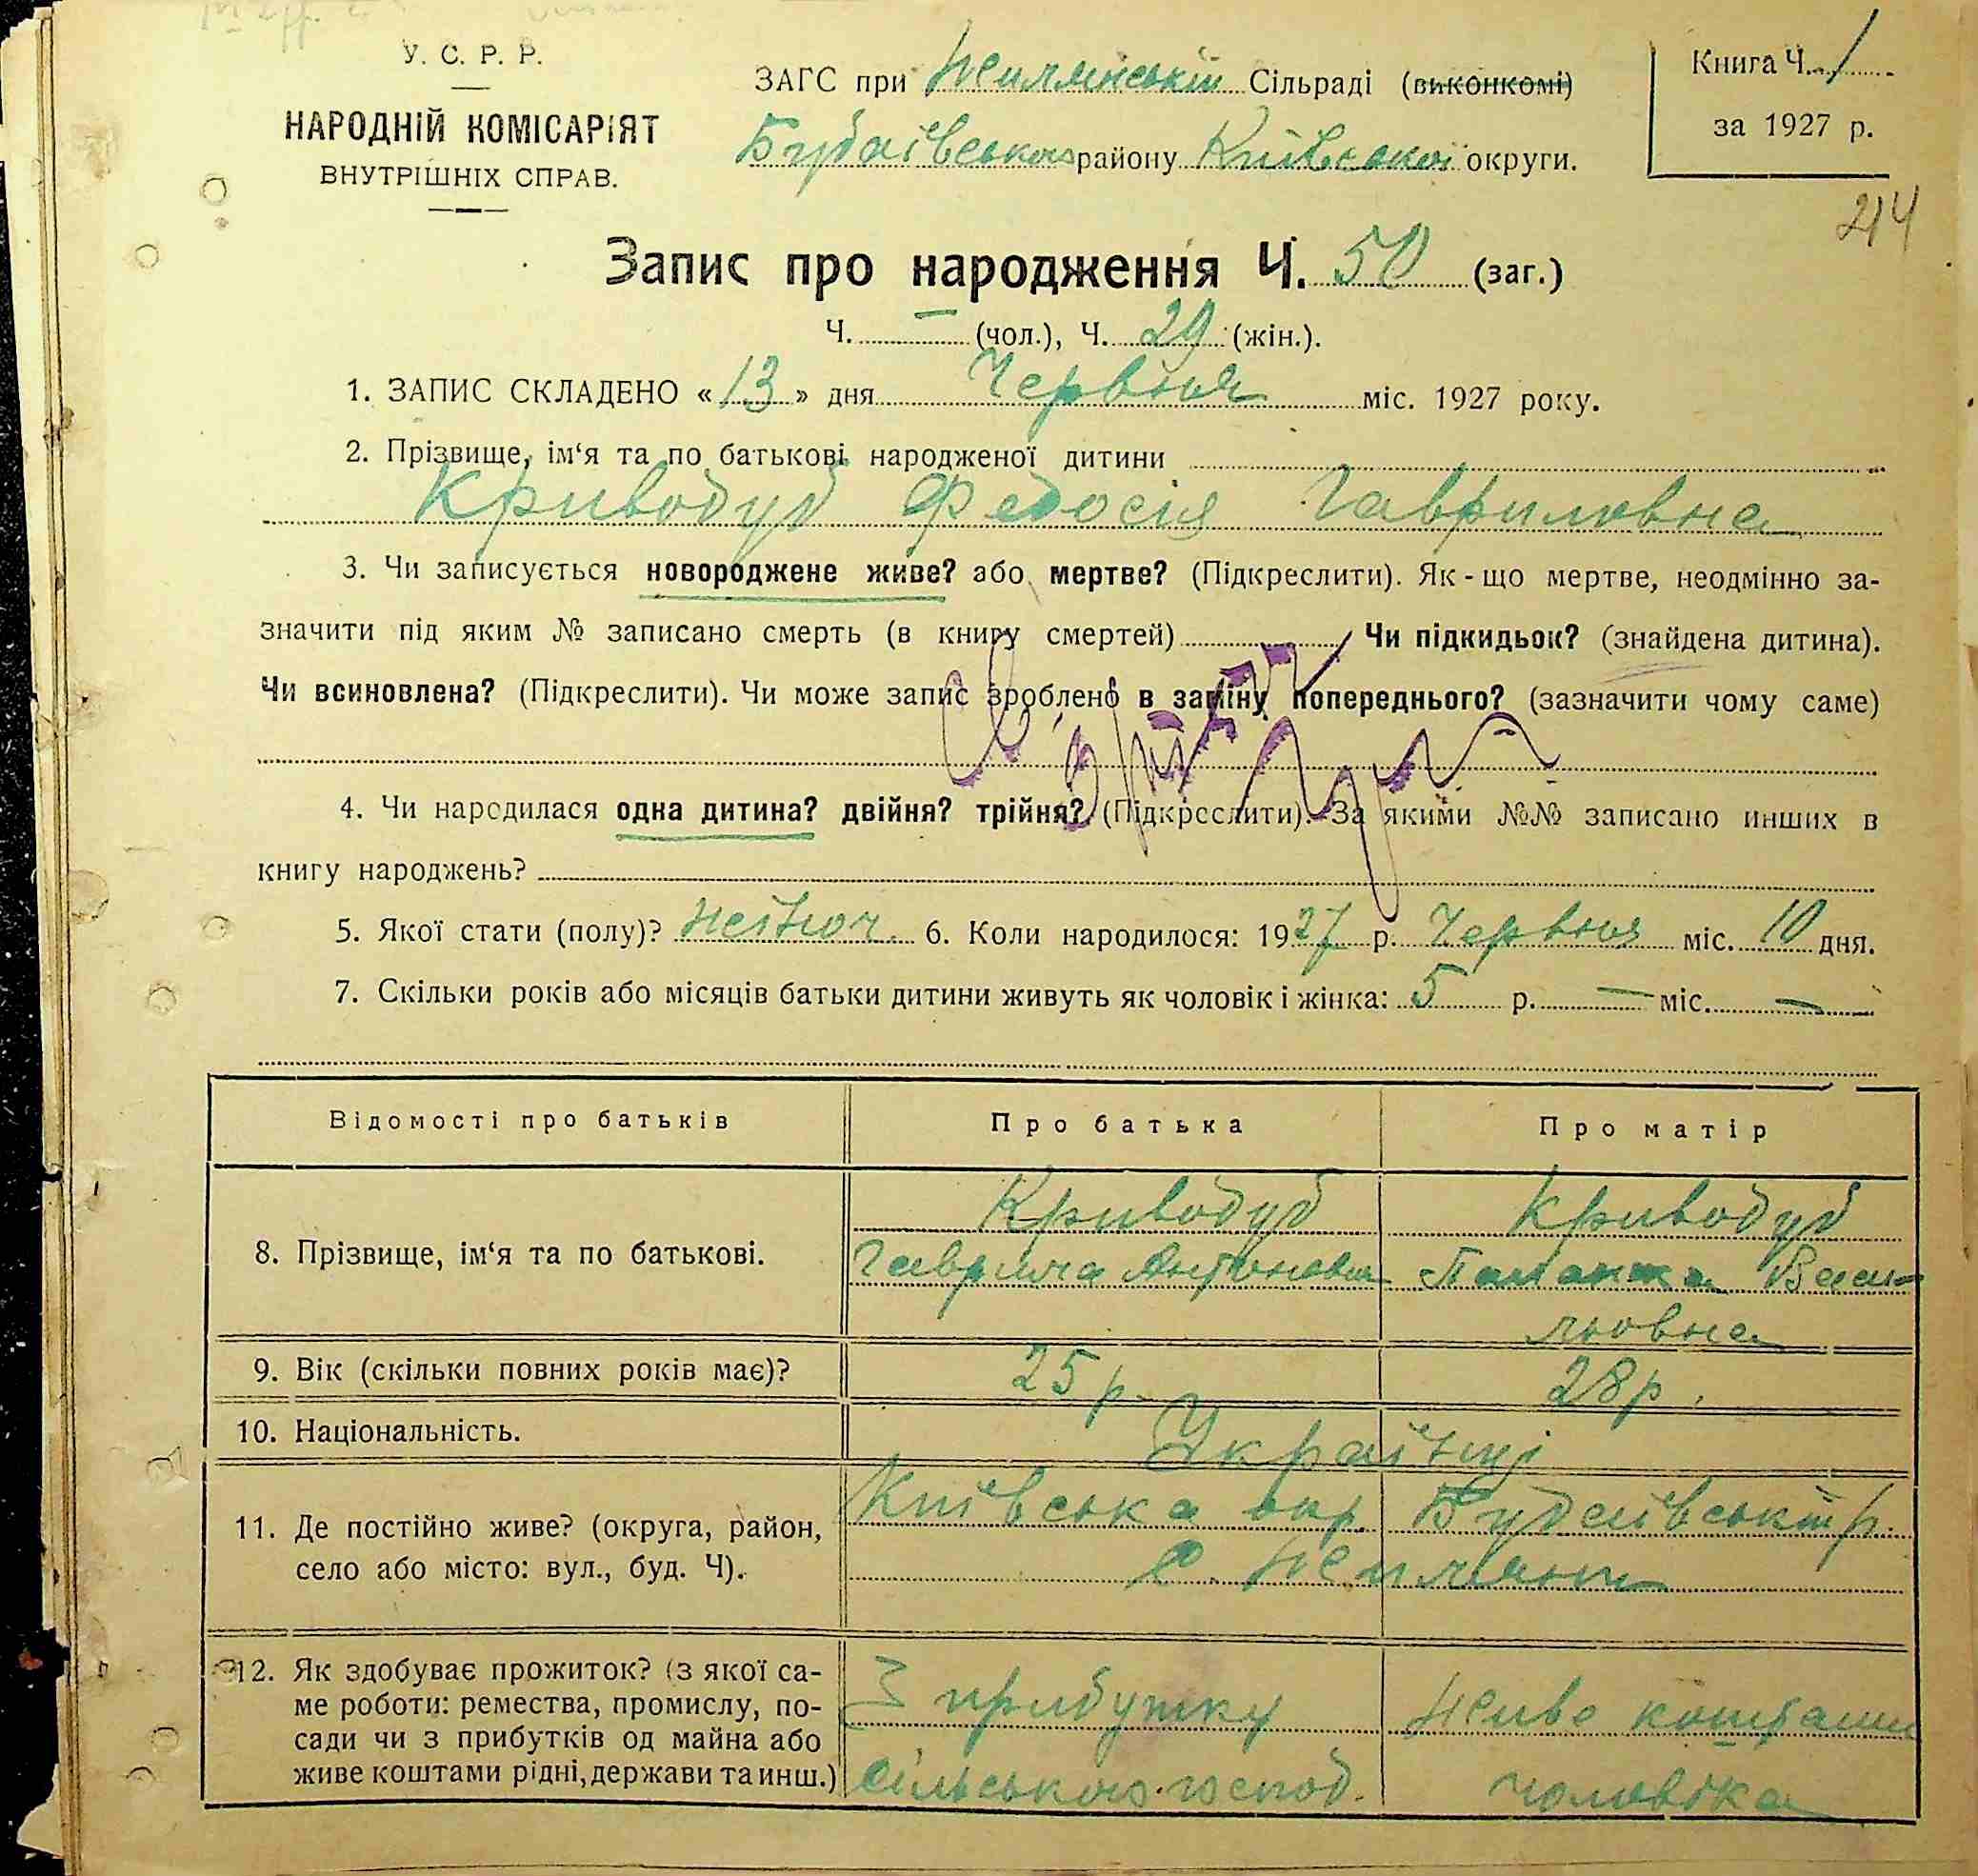 У. С. Р. Р.
НАРОДНІЙ КОМІСАРІЯТ
ВНУТРІШНІХ СПРАВ.
ЗАГС при Жилянській Сільраді (виконкомі)
Будаївського району Київської округи.
Книга Ч. 1
за 1927 р.
214
Запис про народження Ч. 50 (заг.)
Ч. — (чол.), Ч. 29 (жін.).
1. ЗАПИС СКЛАДЕНО «13» дня Червня міс. 1927 року.
2. Прізвище, ім‘я та по батькові народженої дитини
Криводуб Федосія Гавриловна
3. Чи записується новороджене живе? або мертве? (Підкреслити). Як-що мертве, неодмінно за-
значити під яким № записано смерть (в книгу смертей) Чи підкидьок? (знайдена дитина).
Чи всиновлена? (Підкреслити). Чи може запис зроблено в заміну попереднього? (зазначити чому саме)
4. Чи народилася одна дитина? двійня? трійня? (Підкреслити). За якими №№ записано инших в
книгу народжень?
5. Якої стати (полу)? жіноч. 6. Коли народилося: 1927 р. Червня міс. 10 дня.
7. Скільки років або місяців батьки дитини живуть як чоловік і жінка: 5 р. — міс. —
Відомості про батьків Про батька Про матір
Криводуб Криводуб
8. Прізвище, ім‘я та по батькові. Гаврила Антонович Палажка Васи-
льовна
9. Вік (скільки повних років має)? 25 р. 28 р.
10. Національність. Українці
11. Де постійно живе? (округа, район,
село або місто: вул., буд. Ч).
Київська окр. Будаївський р.
с. Жиляни
12. Як здобуває прожиток? (з якої са-
ме роботи: ремества, промислу, по-
сади чи з прибутків од майна або
живе коштами рідні, держави та инш.)
З прибутку
сільського госпоd.
Живе коштами
чоловіка